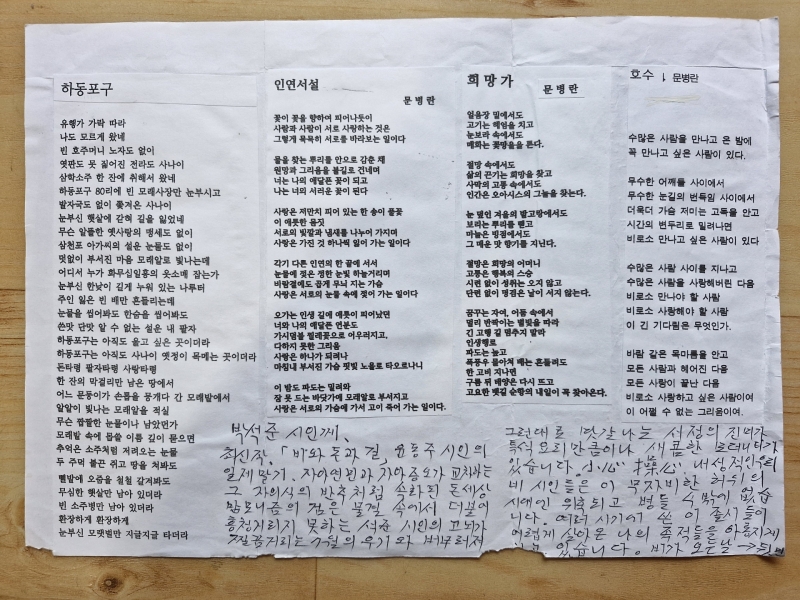 하동포구
유행가 가락 따라
나도 모르게 왔네
빈 호주머니 노자도 없이
옛판도 못 짊어진 전라도 사나이
삼학소주 한 잔에 취해서 왔네
하동포구 80리에 빈 모래사장만 눈부시고
발자국도 없이 쫓겨온 사나이
눈부신 햇살에 갇혀 길을 잃었네
무슨 알뜰한 옛사랑의 맹세도 없이
삼천포 아가씨의 설운 눈물도 없이
덧없이 부서진 마음 모래알로 빛나는데
어디서 누가 화무십일홍의 옷소매 잡는가
눈부신 한낮이 길게 누워 있는 나루터
주인 잃은 빈 배만 흔들리는데
눈물을 씹어봐도 한숨을 씹어봐도
쓴맛 단맛 알 수 없는 설운 내 팔자
하동포구는 아직도 울고 싶은 곳이더라
하동포구는 아직도 사나이 옛정이 목메는 곳이더라
돈타령 팔자타령 사랑타령
한 잔의 막걸리만 남은 땅에서
어느 문둥이가 손톱을 뭉개다 간 모래밭에서
알알이 빛나는 모래알을 적실
무슨 짭짤한 눈물이나 남았던가
모래밭 속에 몹쓸 이름 깊이 묻으면
추억은 소주처럼 저려오는 눈물
두 주먹 불끈 쥐고 땅을 쳐봐도
뻘밭에 오줌을 철철 갈겨봐도
무심한 햇살만 남아 있더라
빈 소주병만 남아 있더라
환장하게 환장하게
눈부신 모랫벌만 지글지글 타더라
인연서설
문병란
꽃이 꽃을 향하여 피어나듯이
사람과 사람이 서로 사랑하는 것은
그렇게 묵묵히 서로를 바라보는 일이다
물을 찾는 뿌리를 안으로 감춘 채
원망과 그리움을 불길로 건네며
너는 나의 애달픈 꽃이 되고
나는 너의 서러운 꽃이 된다
사랑은 저만치 피어 있는 한 송이 풀꽃
이 애틋한 몸짓
서로의 빛깔과 냄새를 나누어 가지며
사랑은 가진 것 하나씩 잃어 가는 일이다
각기 다른 인연의 한 끝에 서서
눈물에 젖은 정한 눈빛 하늘거리며
바람결에도 곱게 무늬 지는 가슴
사랑은 서로의 눈물 속에 젖어 가는 일이다
오가는 인생 길에 애틋이 피어났던
너와 나의 애달픈 연분도
가시덤불 찔레꽃으로 어우러지고,
다하지 못한 그리움
사랑은 하나가 되려나
마침내 부서진 가슴 핏빛 노을로 타오르나니
이 밤도 파도는 밀려와
잠 못 드는 바닷가에 모래알로 부서지고
사랑은 서로의 가슴에 가서 고이 죽어 가는 일이다.
희망가
문병란
얼음장 밑에서도
고기는 헤엄을 치고
눈보라 속에서도
매화는 꽃망울을 튼다.
절망 속에서도
삶의 끈기는 희망을 찾고
사막의 고통 속에서도
인간은 오아시스의 그늘을 찾는다.
눈 덮인 겨울의 밭고랑에서도
보리는 뿌리를 뻗고
마늘은 빙점에서도
그 매운 맛 향기를 지닌다.
절망은 희망의 어머니
고통은 행복의 스승
시련 없이 성취는 오지 않고
단련 없이 명검은 날이 서지 않는다.
꿈꾸는 자여, 어둠 속에서
멀리 반짝이는 별빛을 따라
긴 고행 길 멈추지 말라
인생행로
파도는 높고
폭풍우 몰아쳐 배는 흔들려도
한 고비 지나면
구름 뒤 태양은 다시 뜨고
고요한 뱃길 순항의 내일이 꼭 찾아온다.
호수 문병란
수많은 사람을 만나고 온 밤에
꼭 만나고 싶은 사람이 있다.
무수한 어깨들 사이에서
무수한 눈길의 번득임 사이에서
더욱더 가슴 저미는 고독을 안고
시간의 변두리로 밀려나면
비로소 만나고 싶은 사람이 있다
수많은 사람 사이를 지나고
수많은 사람을 사랑해버린 다음
비로소 만나야 할 사람
비로소 사랑해야 할 사람
이 긴 기다림은 무엇인가.
바람 같은 목마름을 안고
모든 사람과 헤어진 다음
모든 사랑이 끝난 다음
비로소 사랑하고 싶은 사람이여
이 어쩔 수 없는 그리움이여.
박석준 시인께.
최신작. 「비와 돈과 길, 윤동주 시인의
일제말기. 자아연민과 자아증오가 교차하는
그 자의식의 반추처럼 속화된 돈세상
맘모니즘의 검은 물결 속에서 더불어
흥청거리지 못하는 석준 시인의 고뇌가
질끔거리는 7월의 우기와 버무려져
그런대로 맛깔나는 서정의 진미가
특식 요리만큼이나 새콤한
있습니다. 小心 操心 내성적인 우리
비 시인들은 이 무자비한 허위의
시대인 위축되고 병들 수밖에 없습
니다. 여러 시기에 쓴 이 졸시들이
어렵게 살아온 나의 족적들을 아픔지게
있습니다. 비가 오는 날 → 뒤면